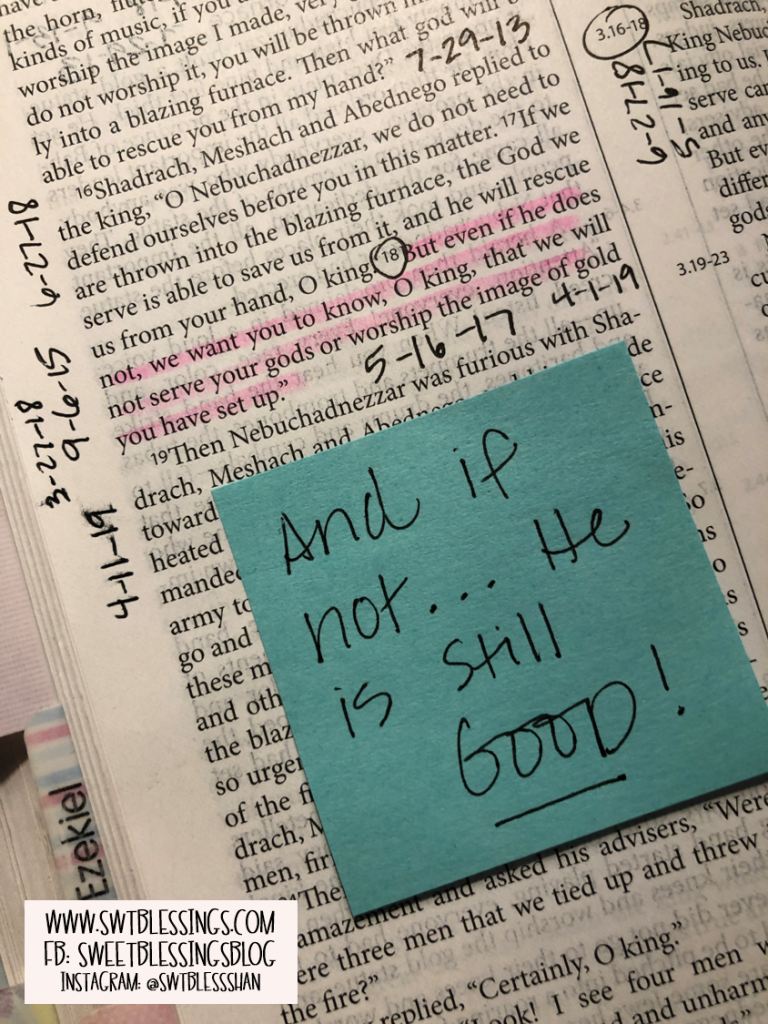 have
the horn, flu
kinds of music, if you a
worship the image I made, very
do not worship it, you will be thrown im
ly into a blazing furnace. Then what god will b
able to rescue you from my hand?” 7-29-13
16Shadrach, Meshach and Abednego replied to
the king, “O Nebuchadnezzar, we do not need to
defend ourselves before you in this matter. 17If we
are thrown into the blazing furnace, the God we
serve is able to save us from it, and he will rescue
us from your hand, O king. 18But even if he does
not, we want you to know, O king, that we will
not serve your gods or worship the image of gold
you have set up.” 5-16-17 4-1-19
19Then Nebuchadnezzar was furious with Sha-
drach, Meshach and Abedne de
toward ce
heated n-
mande is
army to e-
go and So
these m ns
and oth o
the blaz s
so urge
of the f
drach, M
men, fir
The
amazement and asked his advisers, “Were
ere three men that we tied up and threw
the fire?”
replied, “Certainly, O king.”
ook! I see four men w
d and unharm
6-27-18
9-6-15
3-22-18
4-11-19
3.16-18
5-16-17
6-27-18
Shadrach,
King Nebuc
ing to us. I
serve can
and any
But ev
differ
gods
3.19-23
And if
not... He
is still
GOOD!
Ezekiel
WWW.SWTBLESSINGS.COM
FB: SWEETBLESSINGSBLOG
INSTAGRAM: @SWTBLESSSHAN